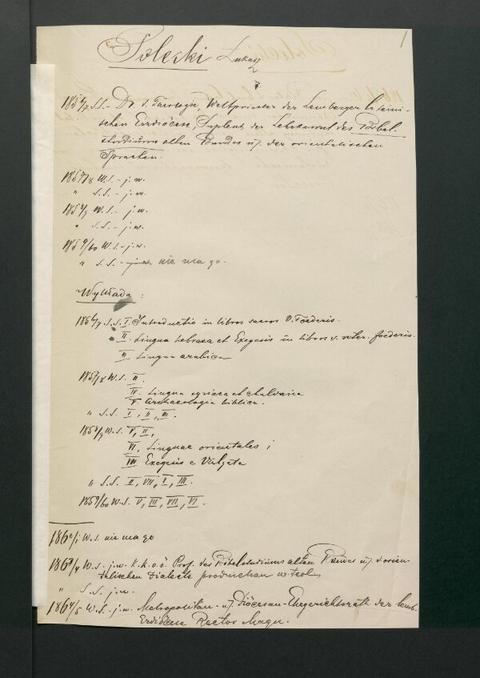 Solecki Łukasz
1
1856/7 S.S. – Dr. d. Theologie, Weltpriester der Lemberger lateini-
schen Erzdiöcese, Supplent der Lehrkanzel des Bibel-
studiums alten Bundes u. der orientalischen
Sprachen.
1857/8 W.S. – j.w.
" S.S. – j.w.
1858/9 W.S. – j.w.
" S.S. – j.w.
1859/60 W.S. – j.w.
" S.S. – nie ma go.
Wykłada:
1856/7 S.S. I. Introductio in libros sacros V. Foederis.
II. Lingua hebraea et Exegesis in libros s. veter. foederis.
III. Lingua arabica
1857/8 W.S. II.
IV. Lingua syriaca et chaldaica
V. Archaeologia biblica.
" S.S. I, II, III.
1858/9 W.S. V, II,
VI. Linguae orientales;
VII. Exegesis e Vulgata
" S.S. II, VII, I, III.
1859/60 W.S. V, III, VII, VI.
W.S. nie ma go
W.S. – j.w. k.k. o.ö. Prof. des Bibelstudiums alten Bundes u. d. orien-
talischen Dialecte prodziekan w. teol.
" S.S. j.w.
1864/5 W.S. – j.w. Metropolitan- u. Diöcesan-Ehegerichtsrath der
Erzdiöcese Rector Magn.